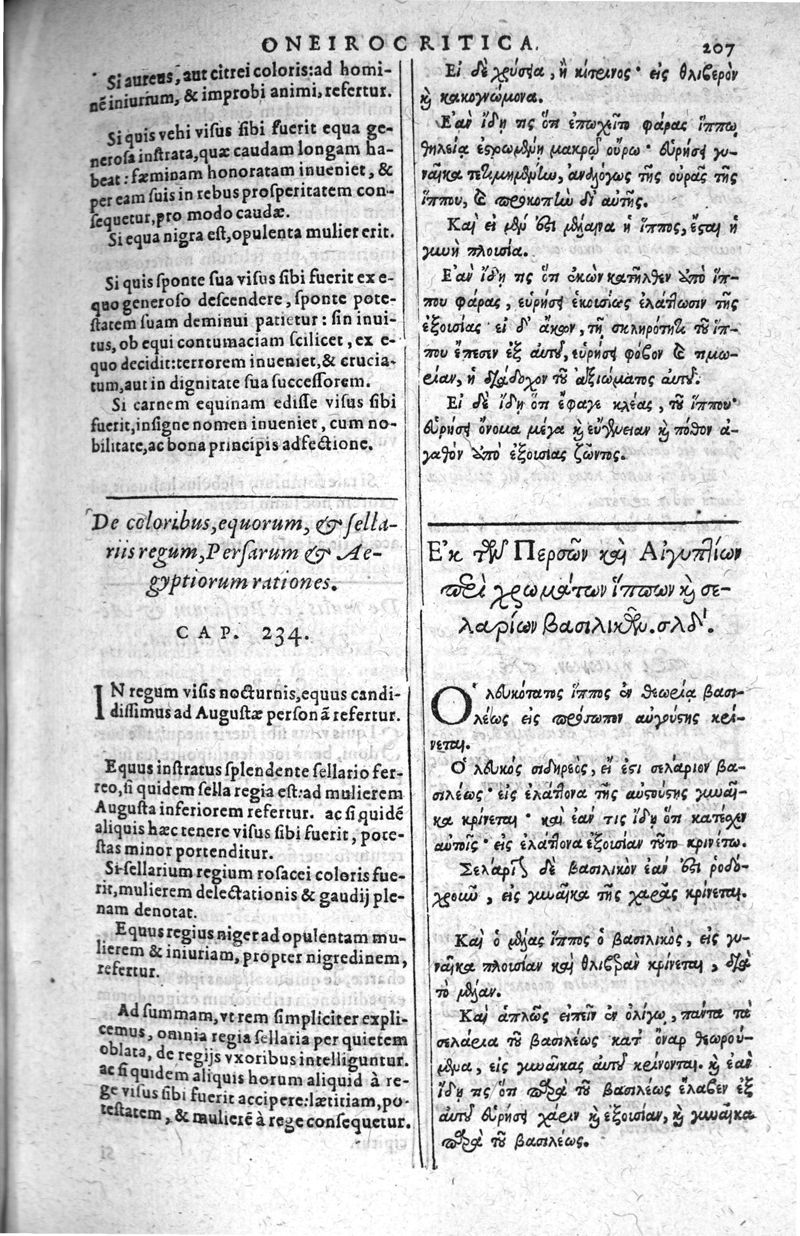 ONEIROCRITICA. 207
Si aureus, aut citrei coloris: ad homi-
nẽ iniurium, & improbi animi, refertur.
Si quis vehi visus sibi fuerit equa ge-
nerosa instrata, quæ caudam longam ha-
beat: fæminam honoratam inueniet, &
per eam suis in rebus prosperitatem con-
sequetur, pro modo caudæ.
Si equa nigra est, opulenta mulier erit.
Si quis sponte sua visus sibi fuerit ex e-
quo generoso descendere, sponte pote-
statem suam deminui patietur: sin inui-
tus, ob equi contumaciam scilicet, ex e-
quo decidit: terrorem inueniet, & crucia-
tum, aut in dignitate sua successorem.
Si carnem equinam edisse visus sibi
fuerit, insigne nomen inueniet, cum no-
bilitate, ac bona principis adfectione.
De coloribus, equorum, & sella-
riis regum, Persarum & Ae-
gyptiorum rationes.
CAP. 234.
IN regum visis nocturnis, equus candi-
dissimus ad Augustæ personã refertur.
Equus instratus splendente sellario fer-
reo, si quidem sella regia est: ad mulierem
Augusta inferiorem refertur. ac si quidẽ
aliquis hæc tenere visus sibi fuerit, pote-
stas minor portenditur.
Si sellarium regium rosacei coloris fue-
rit, mulierem delectationis & gaudij ple-
nam denotat.
Equus regius niger ad opulentam mu-
lierem & iniuriam, propter nigredinem,
refertur.
Ad summam, vt rem simpliciter expli-
cemus, omnia regia sellaria per quietem
oblata, de regijs vxoribus intelliguntur.
ac si quidem aliquis horum aliquid à re-
ge visus sibi fuerit accipere: lætitiam, po-
testatem, & mulierẽ à rege consequetur.
Εἰ δὲ χρύσεα, ἢ κίτρινος· εἰς θλιβερὸν
καὶ κακογνώμονα.
Ἐὰν ἴδῃ τις ὅτι ἐπωχεῖτο φάρας ἵππῳ
θηλείᾳ ἐστρωμένῃ μακρῷ οὔρῳ· εὑρήσει γυ-
ναῖκα τετιμημένην, ἀναλόγως τῆς οὐρᾶς τῆς
ἵππου, καὶ προκοπὴν δι' αὐτῆς.
Καὶ εἰ μὲν ἔστι μέλαινα ἡ ἵππος, ἔσται ἡ
γυνὴ πλουσία.
Ἐὰν ἴδῃ τις ὅτι ἑκὼν κατῆλθεν ἀπὸ ἵπ-
που φάρας, εὑρήσει ἑκουσίως ἐλάττωσιν τῆς
ἐξουσίας· εἰ δ' ἄκων, τῇ σκληρότητι τοῦ ἵπ-
που ἔπεσεν ἐξ αὐτοῦ, εὑρήσει φόβον καὶ τιμω-
ρίαν, ἢ διάδοχον τοῦ ἀξιώματος αὐτοῦ.
Εἰ δὲ ἴδῃ ὅτι ἔφαγε κρέας, τοῦ ἵππου·
εὑρήσει ὄνομα μέγα καὶ εὐγένειαν καὶ πόθον ἀ-
γαθὸν ἀπὸ ἐξουσίας ζῶντος.
Ἐκ τῶν Περσῶν καὶ Αἰγυπτίων
περὶ χρωμάτων ἵππων καὶ σε-
λαρίων βασιλικῶν. σλδʹ.
Ὁ λευκότατος ἵππος ἐν θεωρίᾳ βασι-
λέως εἰς πρόσωπον αὐγούστης κρί-
νεται.
Ὁ λευκὸς σιδηρεὸς, εἰ ἔστι σελάριον βα-
σιλέως· εἰς ἐλάττονα τῆς αὐγούστης γυναῖ-
κα κρίνεται· καὶ ἐάν τις ἴδῃ ὅτι κατέχει
αὐτοῖς· εἰς ἐλάττονα ἐξουσίαν τοῦτο κρινέτω.
Σελάριον δὲ βασιλικὸν ἐὰν ἔστι ῥοδό-
χροιον, εἰς γυναῖκα τῆς χαρᾶς κρίνεται.
Καὶ ὁ μέλας ἵππος ὁ βασιλικὸς, εἰς γυ-
ναῖκα πλουσίαν καὶ θλιβερὰν κρίνεται, διὰ
τὸ μέλαν.
Καὶ ἁπλῶς εἰπεῖν ἐν ὀλίγῳ, πάντα τὰ
σελάρια τοῦ βασιλέως κατ' ὄναρ θεωρού-
μενα, εἰς γυναῖκας αὐτοῦ κρίνονται. καὶ ἐὰν
ἴδῃ τις ὅτι παρὰ τοῦ βασιλέως ἔλαβεν ἐξ
αὐτοῦ εὑρήσει χάριν καὶ ἐξουσίαν, καὶ γυναῖκα
παρὰ τοῦ βασιλέως.